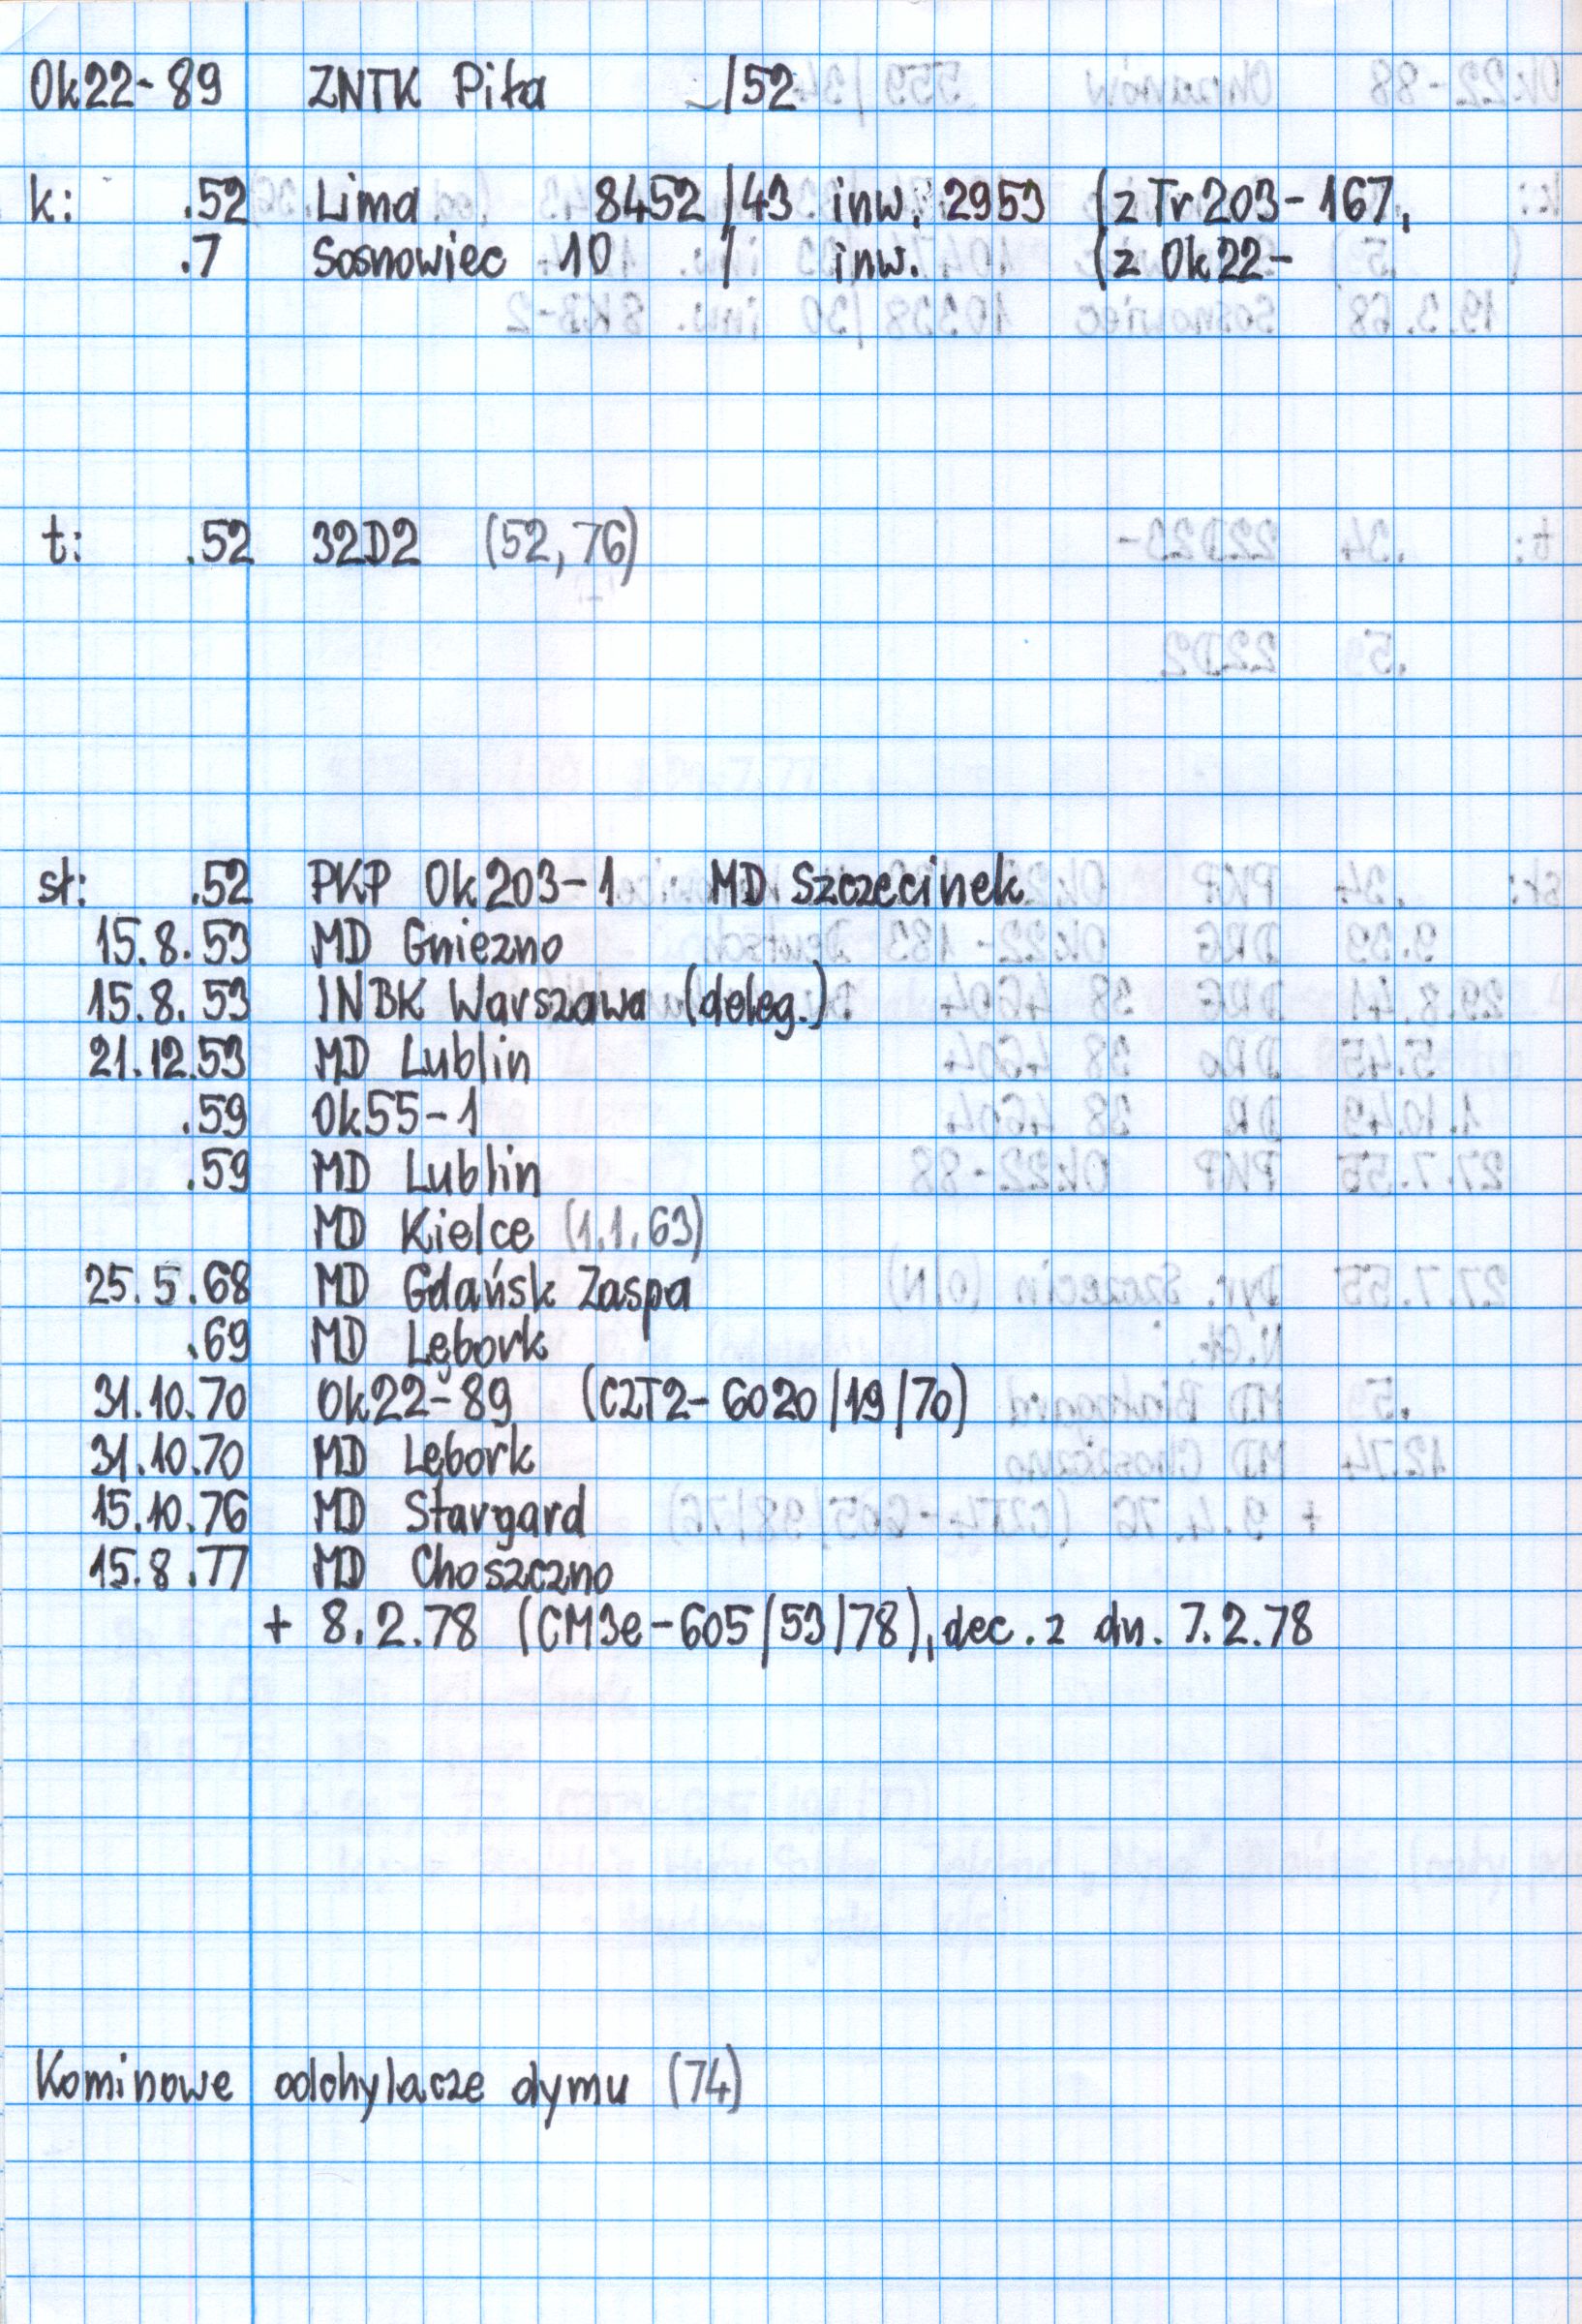 Ok22-89 ZNTK Piła _/52
k: .52 Lima 8452/43 inw. 2953 (z Tr203-167,
.7 Sosnowiec 10 / inw. (z Ok22-
t: .52 32D2 (52,76)
sł: .52 PKP Ok203-1 MD Szczecinek
15.8.53 MD Gniezno
15.8.53 INBK Warszawa (deleg.)
21.12.53 MD Lublin
.59 Ok55-1
.59 MD Lublin
MD Kielce (1.1.63)
25.5.68 MD Gdańsk Zaspa
.69 MD Lębork
31.10.70 Ok22-89 (C2T2-6020/19/70)
31.10.70 MD Lębork
15.10.76 MD Stargard
15.8.77 MD Choszczno
+ 8.2.78 (CM3e-605/53/78), dec. z dn. 7.2.78
Kominowe odchylacze dymu (74)